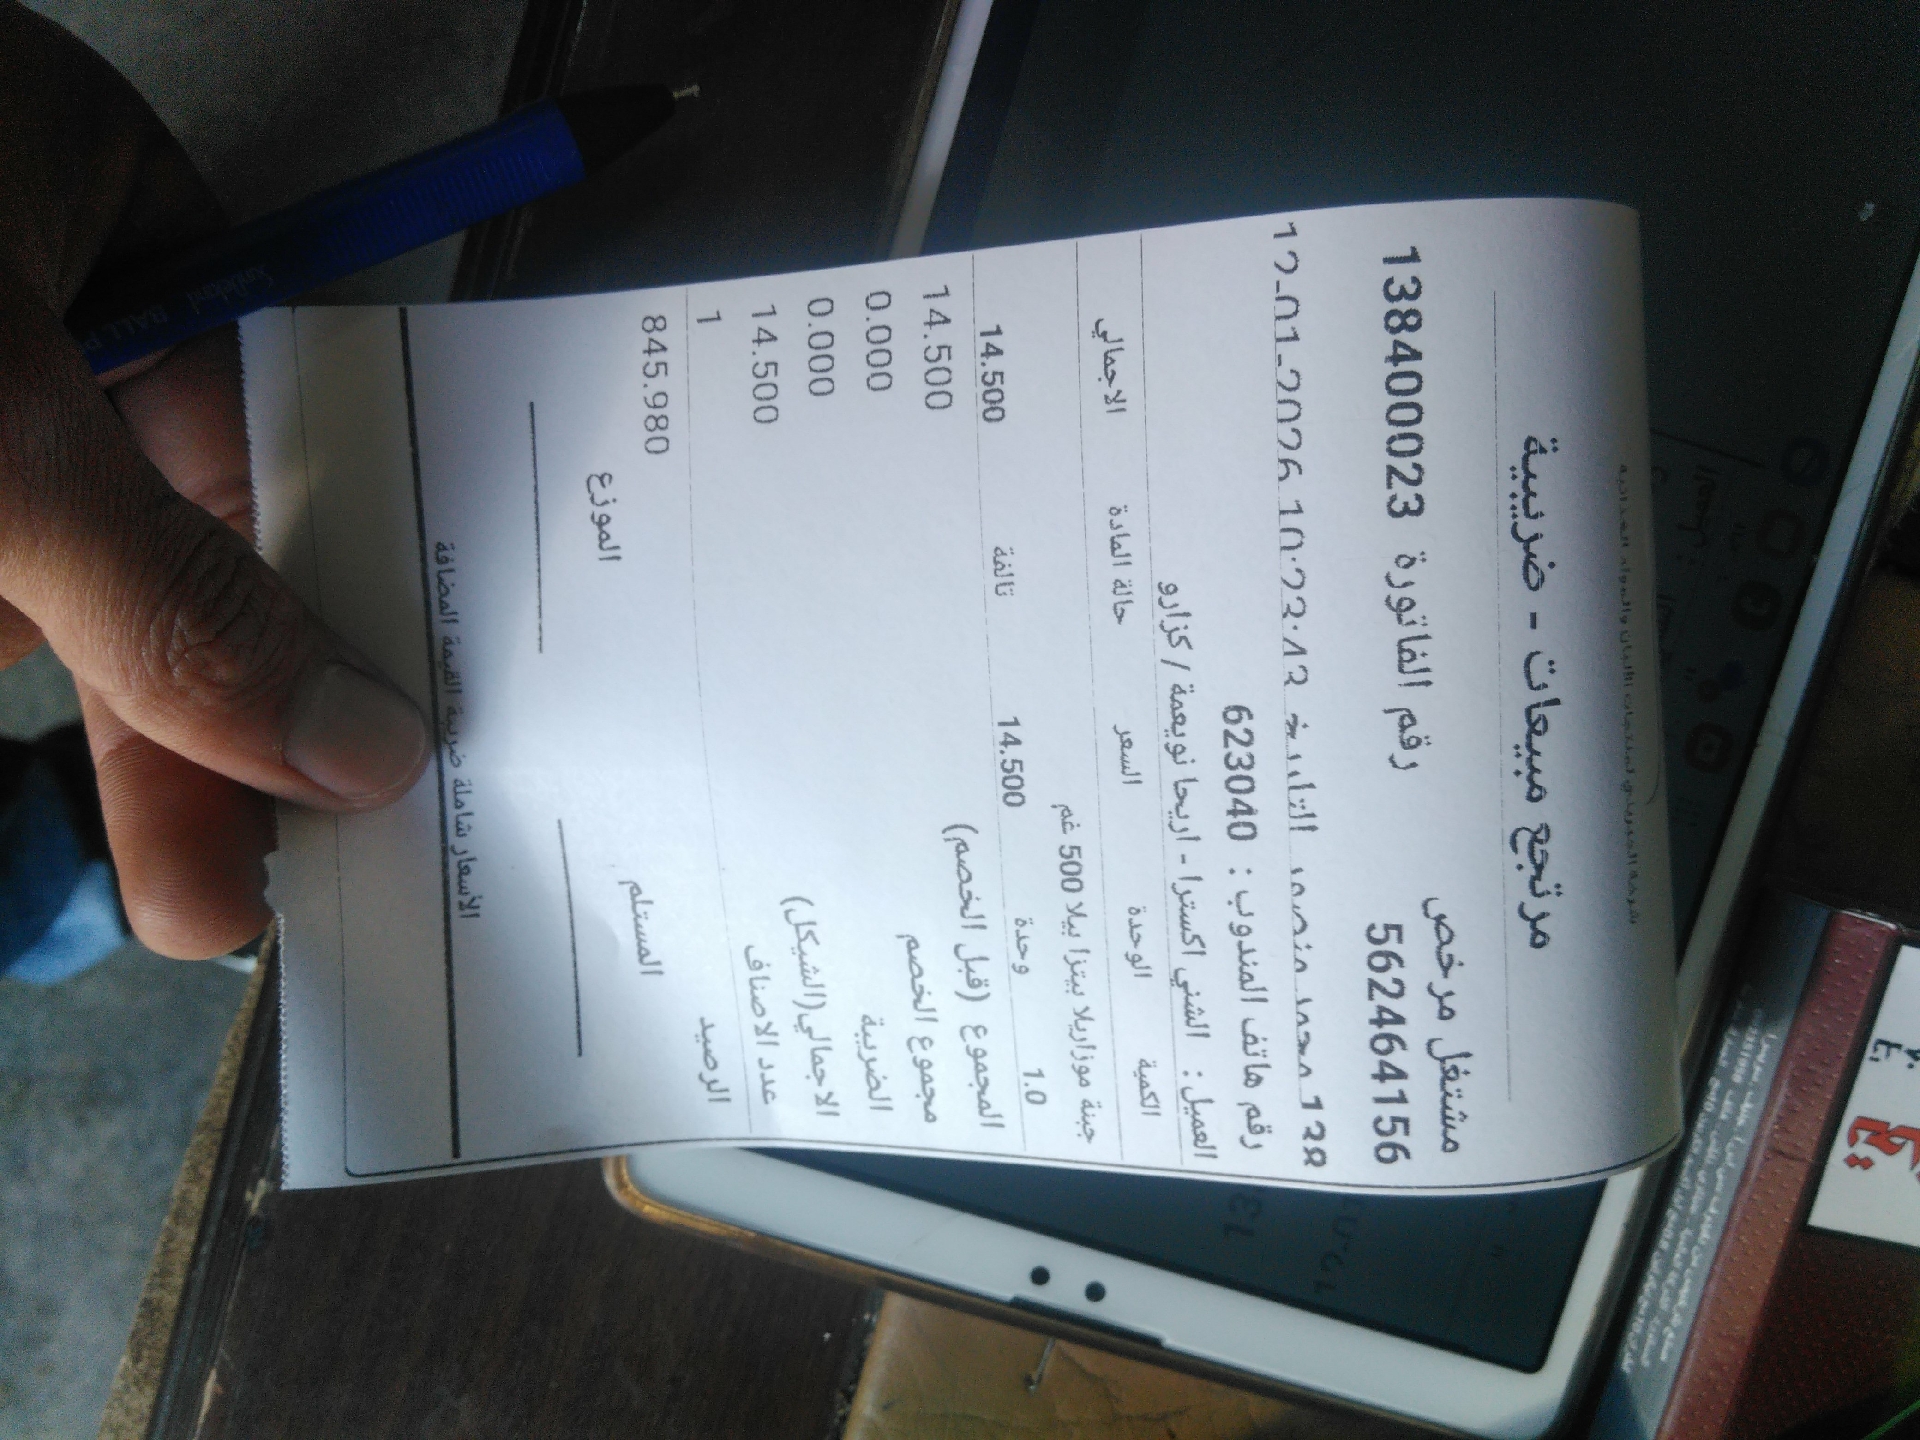 مرتجع مبيعات - ضريبية
مشتغل مرخص
562464156 رقم الفاتورة 138400023
128 محمد منصور التاريخ 12-01-2026 10:23:43
رقم هاتف المندوب : 623040
العميل : الشني اكسترا - اريحا نويعمة / كزارو
الكمية الوحدة السعر حالة المادة الاجمالي
جبنة موزاريلا بيتزا بيلا 500 غم
1.0 وحدة 14.500 تالفة 14.500
المجموع (قبل الخصم) 14.500
مجموع الخصم 0.000
الضريبة 0.000
الاجمالي(الشيكل) 14.500
عدد الاصناف 1
الرصيد 845.980
المستلم الموزع
الأسعار شاملة ضريبة القيمة المضافة
BALL